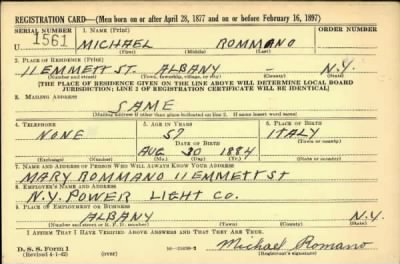 REGISTRATION CARD—(Men born on or after April 28, 1877 and on or before February 16, 1897)
SERIAL NUMBER 1. NAME (Print) ORDER NUMBER
U 1561 MICHAEL ROMMANO
(First) (Middle) (Last)
2. PLACE OF RESIDENCE (Print)
11 EMMETT ST. ALBANY - N.Y.
(Number and street) (Town, township, village, or city) (County) (State)
[THE PLACE OF RESIDENCE GIVEN ON THE LINE ABOVE WILL DETERMINE LOCAL BOARD
JURISDICTION; LINE 2 OF REGISTRATION CERTIFICATE WILL BE IDENTICAL]
3. MAILING ADDRESS
SAME
(Mailing address if other than place indicated on line 2. If same insert word same)
4. TELEPHONE 5. AGE IN YEARS 6. PLACE OF BIRTH
NONE 57 ITALY
DATE OF BIRTH (Town or county)
AUG 30 1884
(Exchange) (Number) (Mo.) (Day) (Yr.) (State or country)
7. NAME AND ADDRESS OF PERSON WHO WILL ALWAYS KNOW YOUR ADDRESS
MARY ROMMANO 11 EMMETT ST
8. EMPLOYER'S NAME AND ADDRESS
N.Y. POWER LIGHT CO.
9. PLACE OF EMPLOYMENT OR BUSINESS
ALBANY N.Y.
(Number and street or R. F. D. number) (Town) (County) (State)
I AFFIRM THAT I HAVE VERIFIED ABOVE ANSWERS AND THAT THEY ARE TRUE.
D. S. S. Form 1
(Revised 4-1-42) (over) Michael Romano
(Registrant's signature)